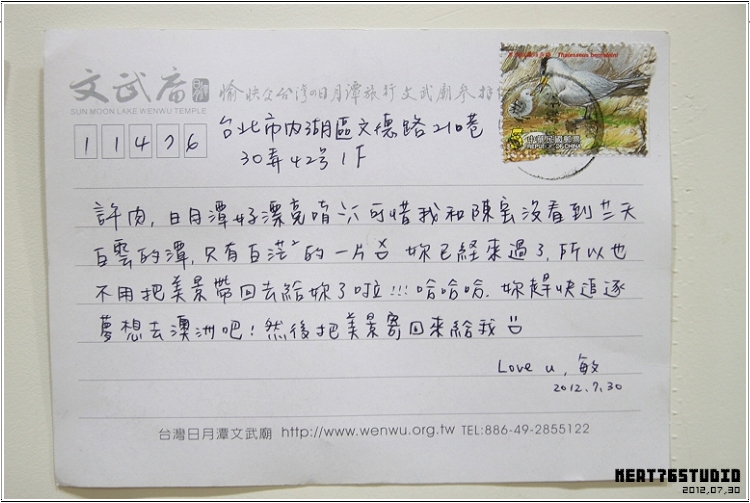 文武廟
愉快ㄉ台灣の日月潭旅行文武廟參拜
SUN MOON LAKE WENWU TEMPLE
Thalasseus bernsteini
中華民國郵票
REPUBLIC OF CHINA
11476
台北市內湖區文德路210巷
30弄42号1F
許肉,日月潭好漂亮唷 可惜我和陳宝沒看到藍天
白雲的潭,只有白茫茫的一片 妳已經來過了,所以也
不用把美景帶回去給妳了啦!!!哈哈哈.妳趕快追逐
夢想去澳洲吧!然後把美景寄回來給我
Love u, 敏
2012.7.30
台灣日月潭文武廟 http://www.wenwu.org.tw TEL:886-49-2855122
MEAT76STUDIO
2012,07,30